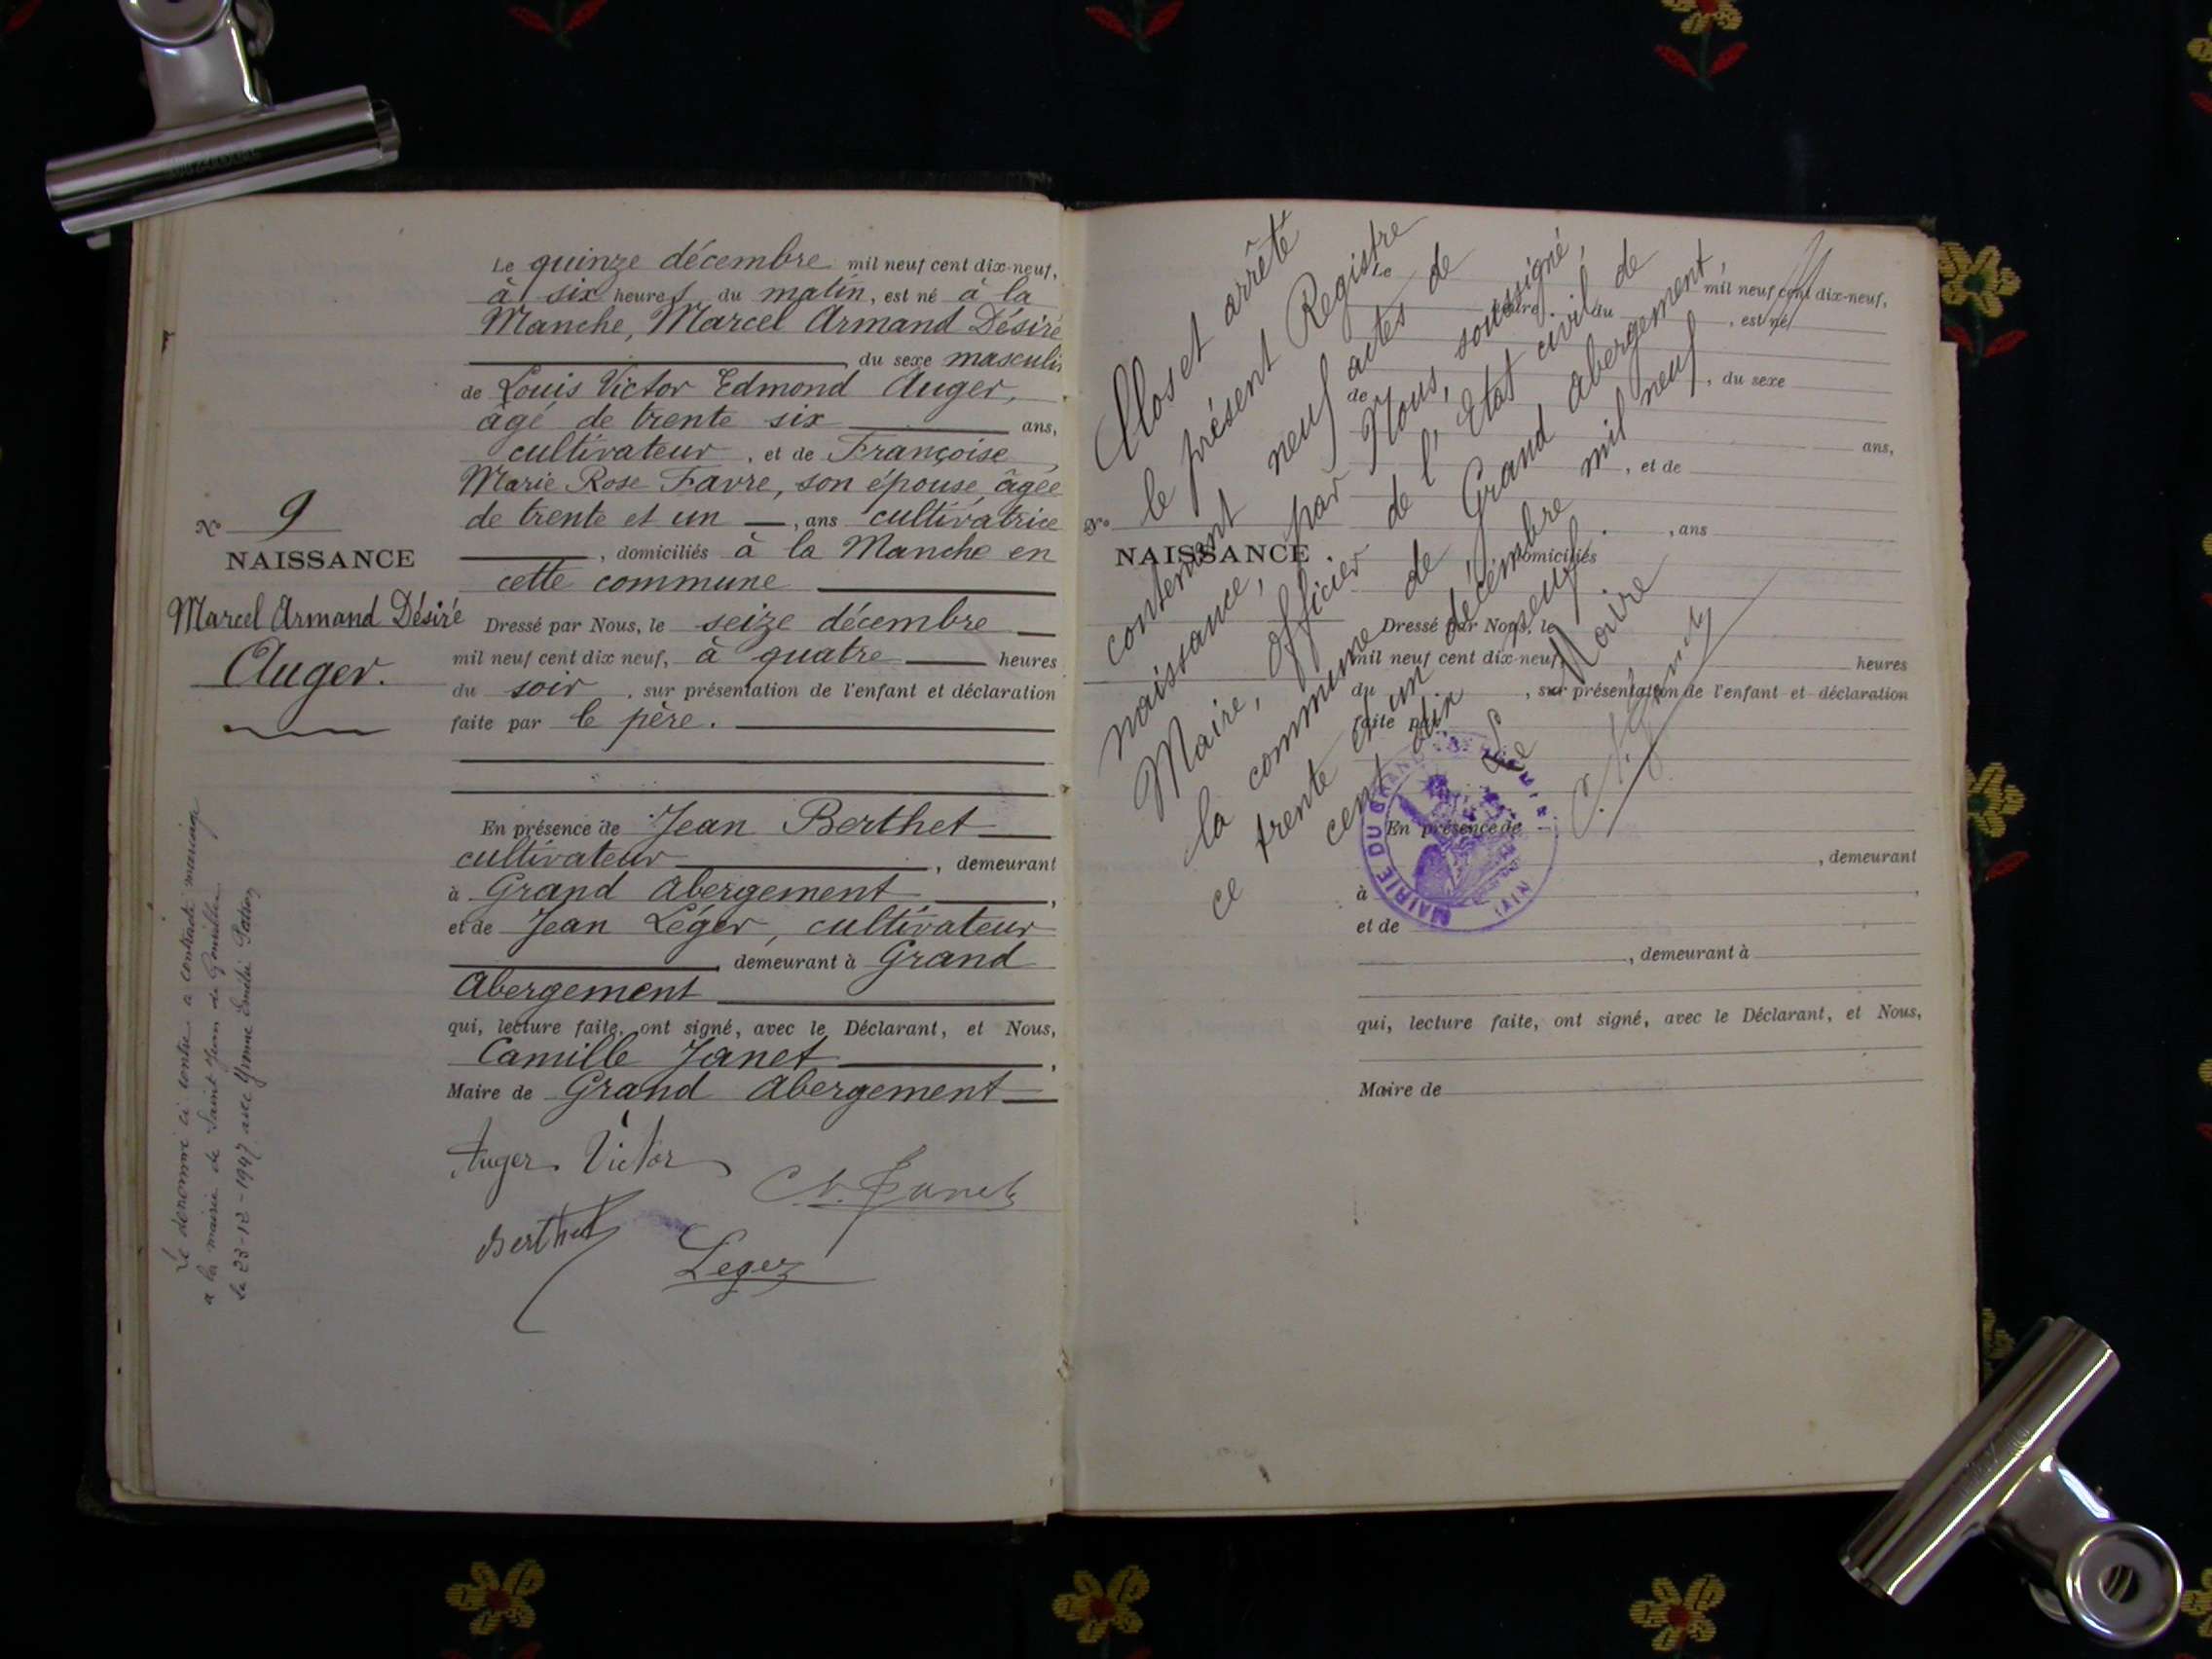 Le quinze décembre mil neuf cent dix-neuf,
à six heures du matin, est né à la
Manche, Marcel Armand Désiré
du sexe masculin
de Louis Victor Edmond Auger,
âgé de trente six ans,
cultivateur, et de Françoise
Marie Rose Favre, son épouse, âgée
de trente et un, ans cultivatrice
, domiciliés à la Manche en
cette commune
Dressé par Nous, le seize décembre
mil neuf cent dix neuf, à quatre heures
du soir, sur présentation de l'enfant et déclaration
faite par le père.
En présence de Jean Berthet
cultivateur, demeurant
à Grand Abergement,
et de Jean Léger, cultivateur
demeurant à Grand
Abergement
qui, lecture faite, ont signé, avec le Déclarant, et Nous,
Camille Janet,
Maire de Grand Abergement
Auger Victor
C. Janet
Berthet
Leger
No 9
NAISSANCE
Marcel Armand Désiré
Auger.
Le dénommé ci contre a contracté mariage
à la mairie de Saint Jean de
le 23-12-1947 avec Yvonne
Clos et arrêté
le présent Registre
contenant neuf actes de
naissance, par Nous, soussigné,
Maire, Officier de l'Etat civil de
la commune de Grand Abergement,
ce trente et un décembre mil neuf
cent dix neuf.
Le Maire
MAIRIE DU GRAND
(AIN)
Le mil neuf cent dix-neuf,
heure du, est né
, du sexe
de
ans,
, et de
, ans
domiciliés
No
NAISSANCE
Dressé par Nous, le
mil neuf cent dix-neuf, heures
du, sur présentation de l'enfant et déclaration
faite par
En présence de
, demeurant
à,
et de
, demeurant à
qui, lecture faite, ont signé, avec le Déclarant, et Nous,
Maire de